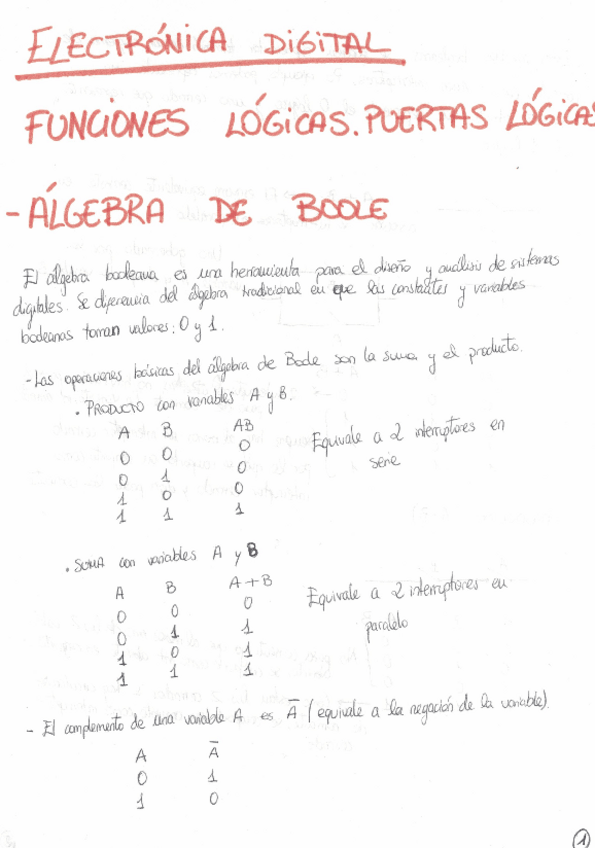 ELECTRÓNICA DIGITAL
FUNCIONES LÓGICAS. PUERTAS LÓGICAS
- ÁLGEBRA DE BOOLE
El álgebra booleana es una herramienta para el diseño y análisis de sistemas
digitales. Se diferencia del álgebra tradicional en que las constantes y variables
booleanas toman valores: 0 y 1.
- Las operaciones básicas del álgebra de Boole son la suma y el producto.
• PRODUCTO con variables A y B.
A B AB
0 0 0
0 1 0
1 0 0
1 1 1
Equivale a 2 interruptores en
serie
• SUMA con variables A y B
A B A+B
0 0 0
0 1 1
1 0 1
1 1 1
Equivale a 2 interruptores en
paralelo
- El complemento de una variable A es A̅ (equivale a la negación de la variable).
A A̅
0 1
1 0
1